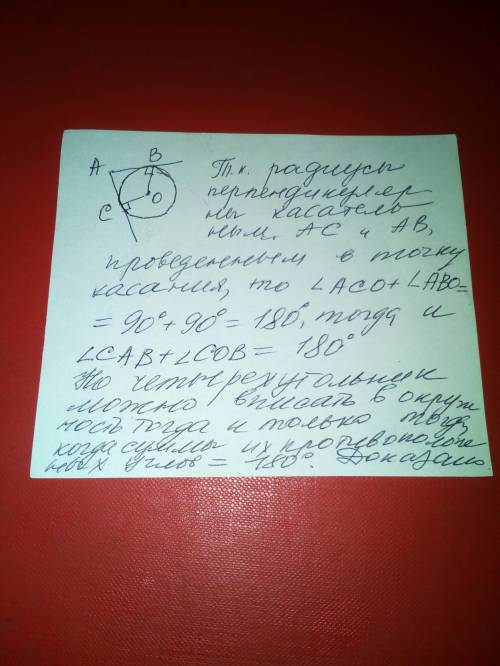 A B
C O
Т.к. радиусы
перпендикуляр
ны касатель
ным. AC и AB,
проведенным в точку
касания, то ∠ACO+∠ABO=
=90°+90°=180°, тогда и
∠CAB+∠COB=180°
Но четырехугольник
можно вписать в окруж
ность тогда и только тогда,
когда суммы их противополож
ных углов = 180°. Доказано.